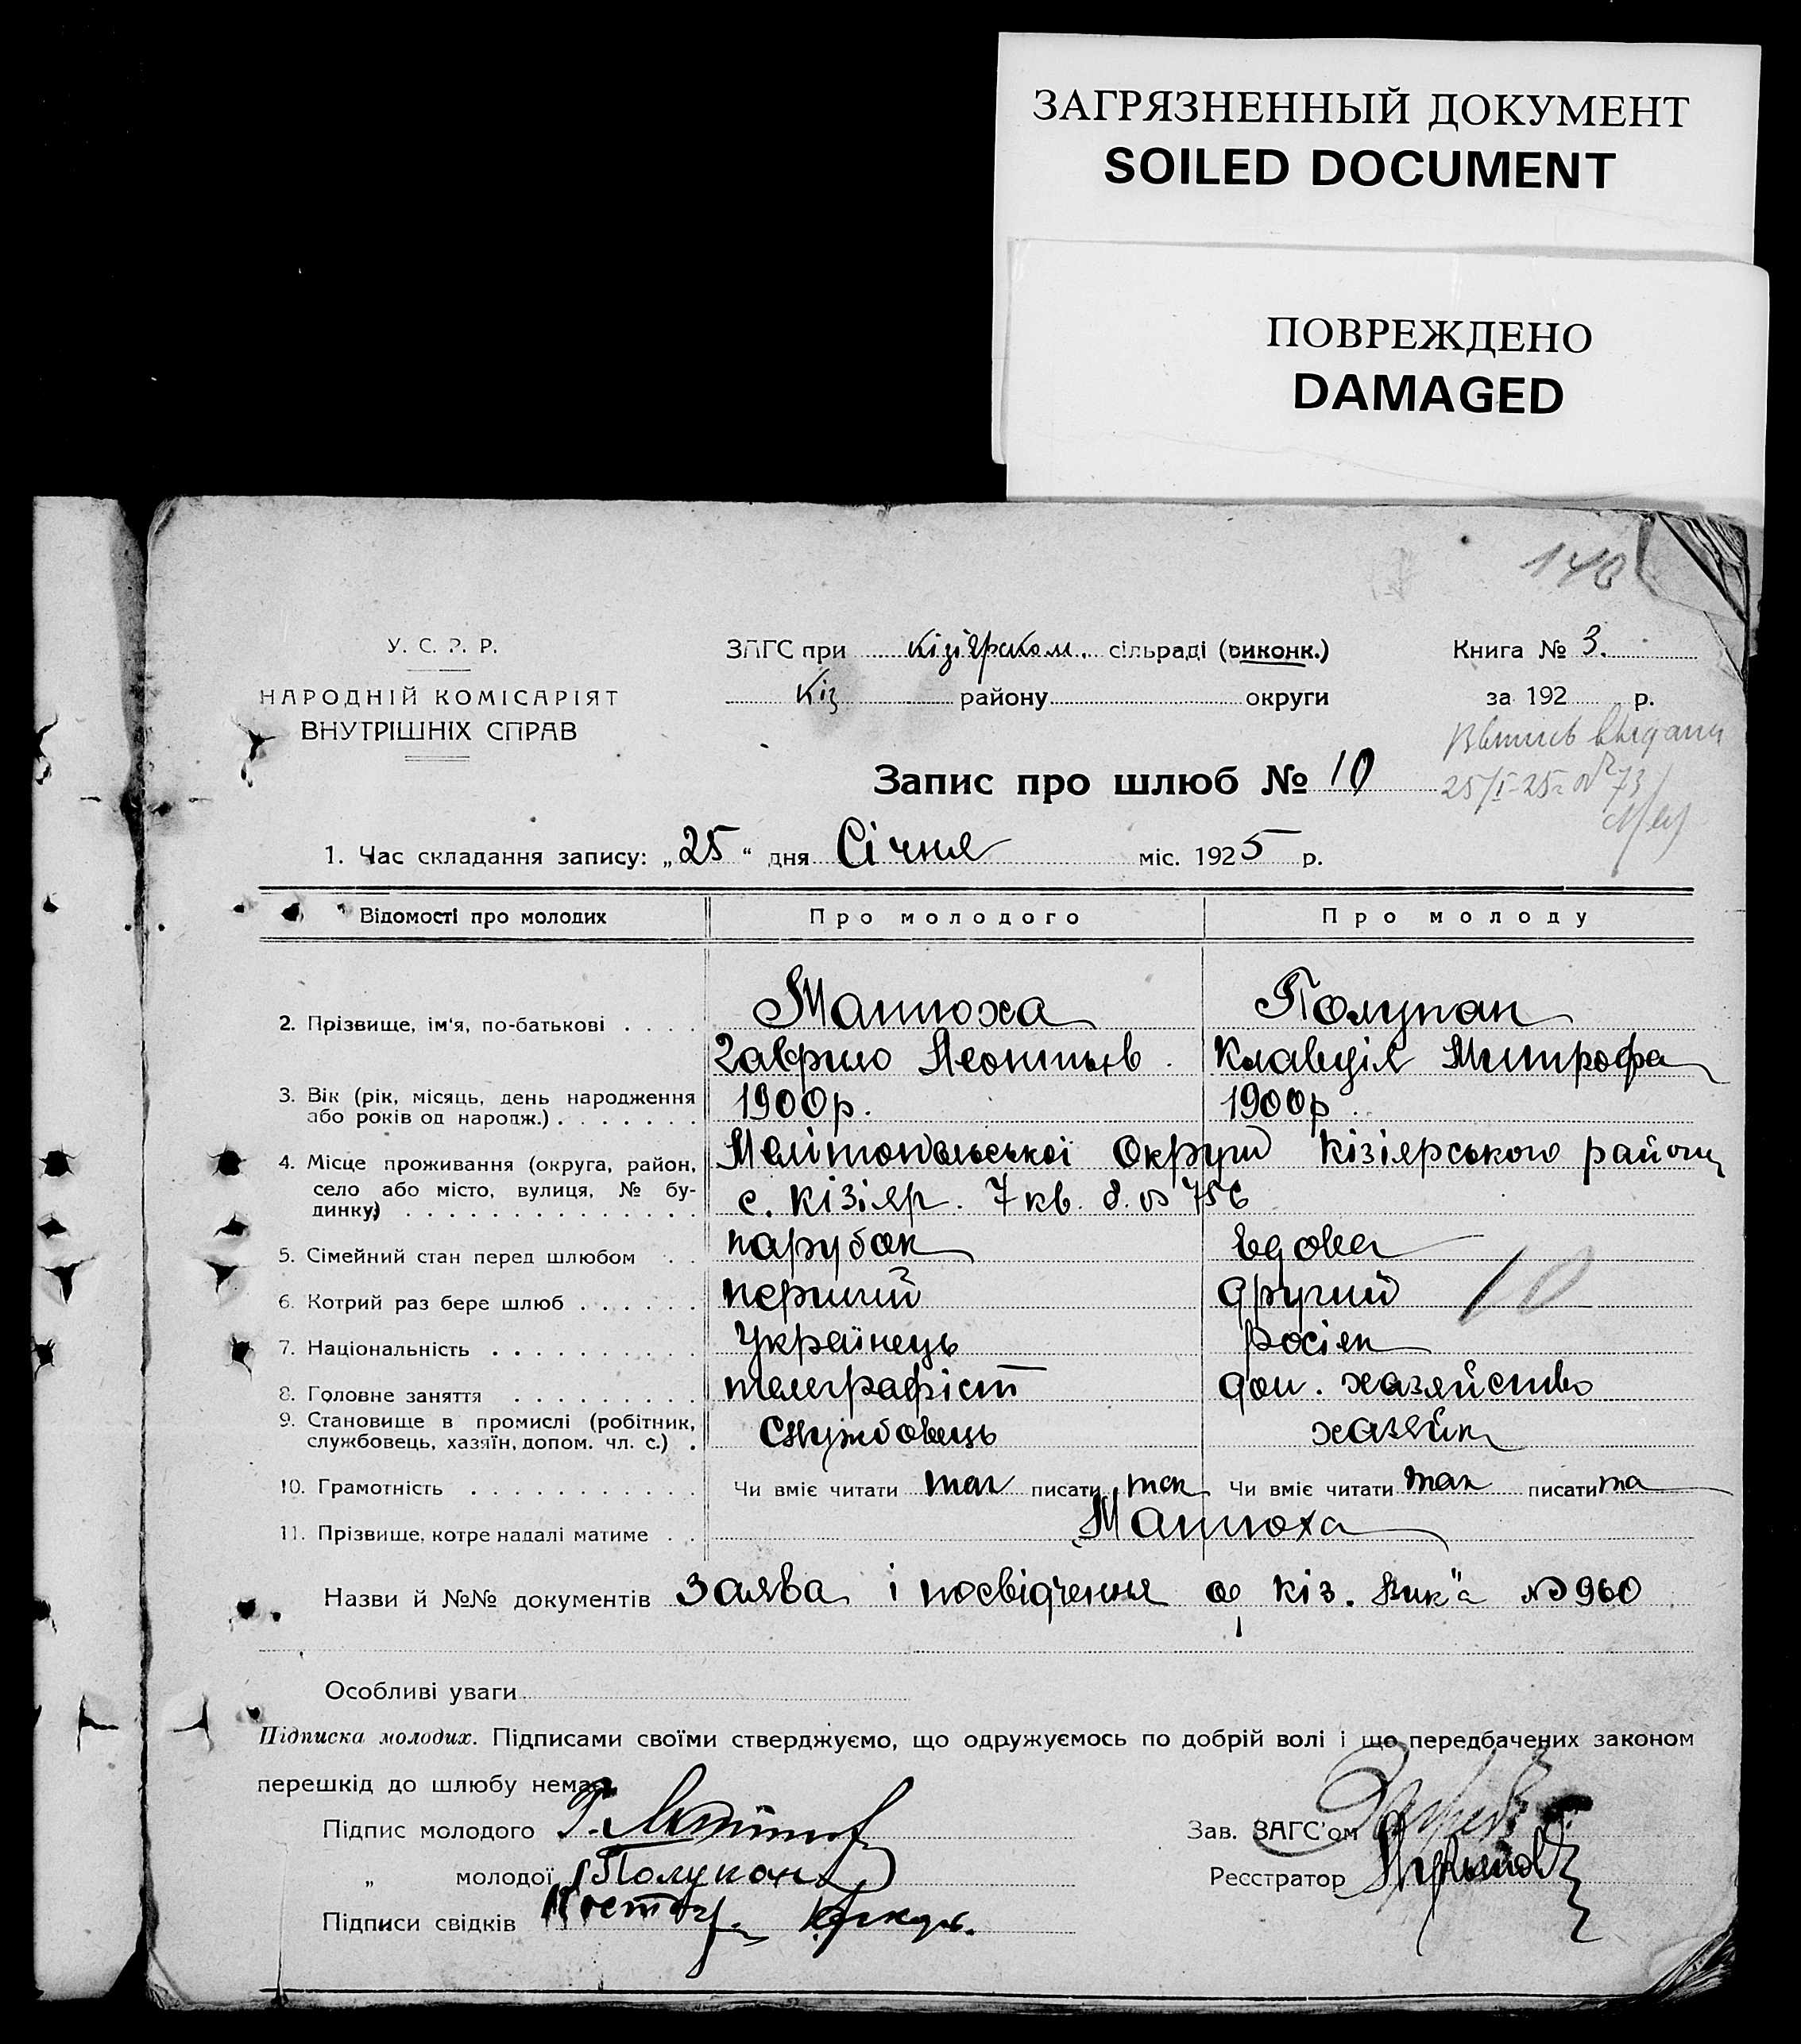 ЗАГРЯЗНЕННЫЙ ДОКУМЕНТ
SOILED DOCUMENT
ПОВРЕЖДЕНО
DAMAGED
140
У. С. Р. Р.
НАРОДНІЙ КОМІСАРІЯТ
ВНУТРІШНІХ СПРАВ
ЗАГС при кізіярском. сільраді (виконк.)
Кіз району округи
Книга № 3.
за 192 р.
Запис про шлюб № 10
25/I-25 г № 73
1. Час складання запису: „25“ дня Січня міс. 1925 р.
Відомості про молодих Про молодого Про молоду
2. Прізвище, ім'я, по-батькові . . . . Матюха Полупан
Гаврило Леонтьєв Клавдія Митрофа
3. Вік (рік, місяць, день народження
або років од народж.) . . . . . . . 1900р. 1900р
4. Місце проживання (округа, район, Мелітопольської Округи Кізіярського району
село або місто, вулиця, № бу-
динку) с. Кізіяр. 7 кв. д. № 756
5. Сімейний стан перед шлюбом . . парубок вдова
6. Котрий раз бере шлюб . . . . . . перший другий 10
7. Національність . . . . . . . . . . Українець росіян
8. Головне заняття . . . . . . . . . телеграфіст дом. хазяйство
9. Становище в промислі (робітник,
службовець, хазяїн, допом. чл. с.) . Службовець хазяйк
10. Грамотність . . . . . . . . . . . Чи вміє читати так писати так Чи вміє читати так писати та
11. Прізвище, котре надалі матиме . . Матюха
Назви й №№ документів Заява і посвідчення од Кіз. Вик"а № 960
Особливі уваги
Підписка молодих. Підписами своїми стверджуємо, що одружуємось по добрій волі і що передбачених законом
перешкід до шлюбу немає.
Підпис молодого Г. Зав. ЗАГС'ом
„ молодої Полупан Реєстратор
Підписи свідків